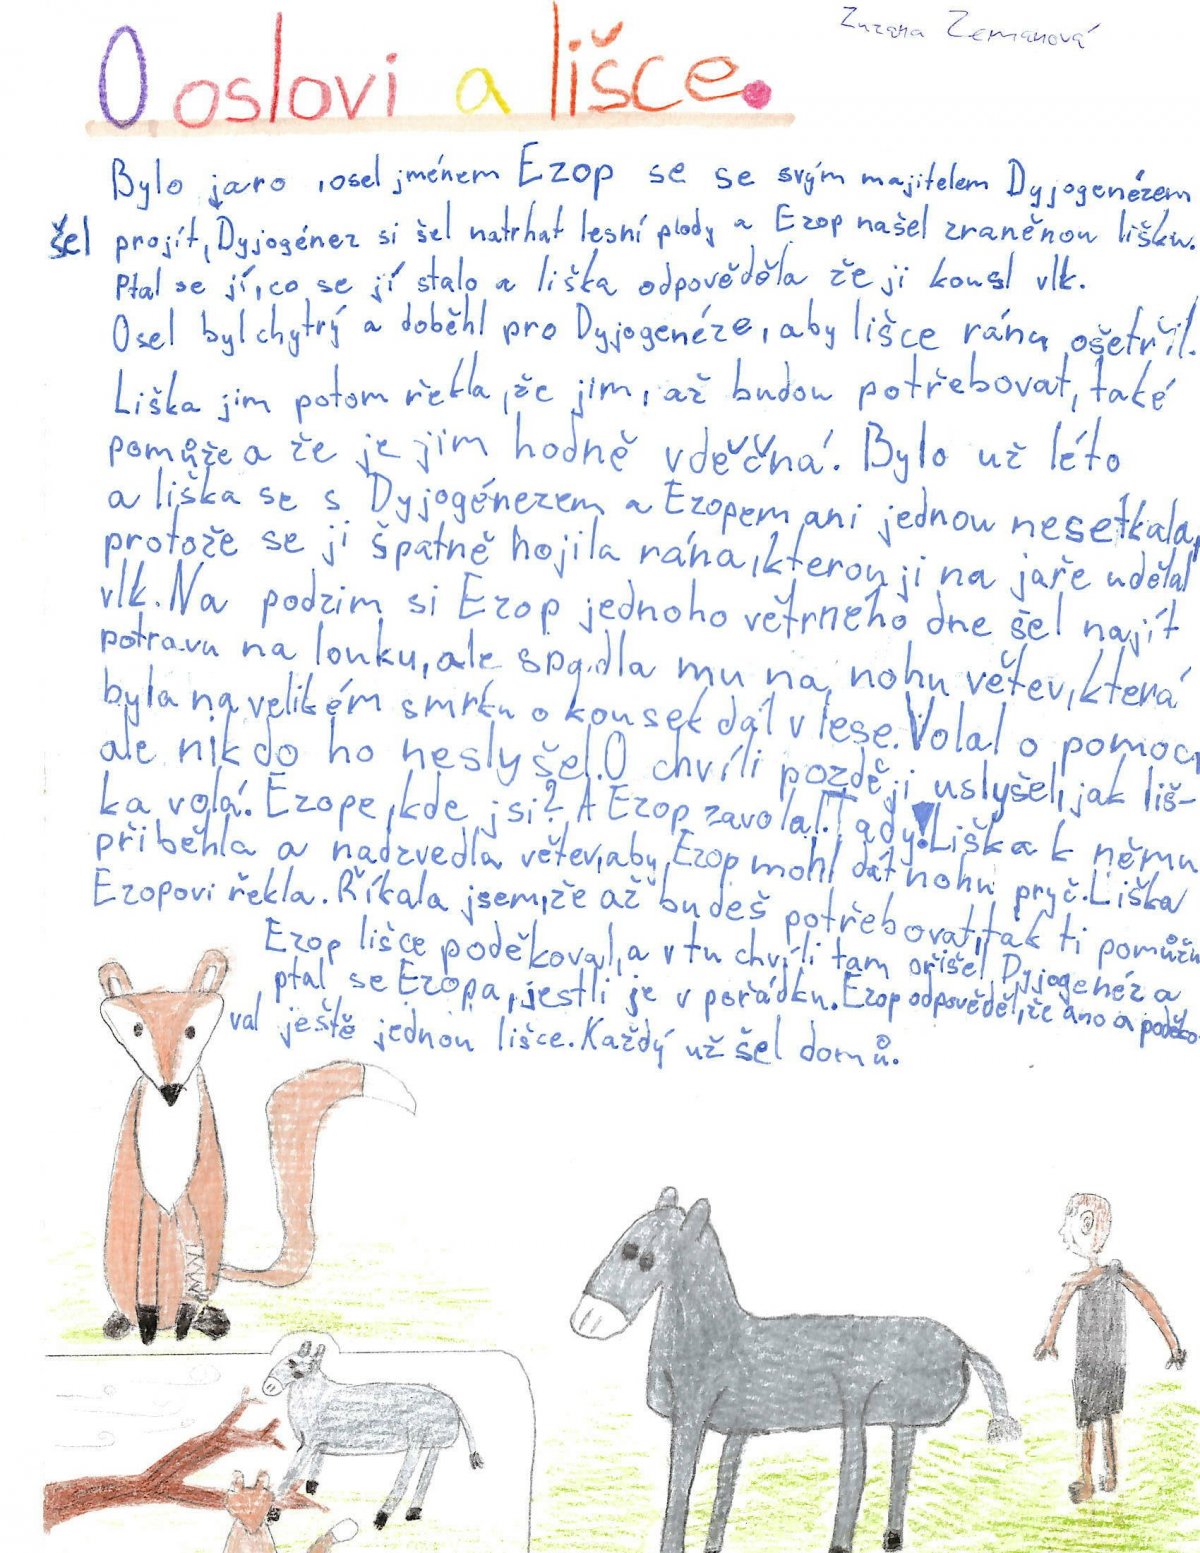 Zuzana Zemanová
O oslovi a lišce.
Bylo jaro, osel jménem Ezop se se svým majitelem Dyjogenézem
šel projít, Dyjogénez si šel natrhat lesní plody a Ezop našel zraněnou lišku.
Ptal se jí, co se jí stalo a liška odpověděla že ji kousl vlk.
Osel byl chytrý a doběhl pro Dyjogenéze, aby lišce ránu ošetřil.
Liška jim potom řekla, že jim, až budou potřebovat, také
pomůže a že je jim hodně vděčná. Bylo už léto
a liška se s Dyjogénezem a Ezopem ani jednou nesetkala,
protože se ji špatně hojila rána, kterou ji na jaře udělal
vlk. Na podzim si Ezop jednoho větrného dne šel najít
potravu na louku, ale spadla mu na nohu větev, která
byla na velikém smrku o kousek dál v lese. Volal o pomoc,
ale nikdo ho neslyšel. O chvíli později uslyšel, jak liš-
ka volá. Ezope, kde jsi? A Ezop zavolal. Tady! Liška k němu
přiběhla a nadzvedla větev, aby Ezop mohl dát nohu pryč. Liška
Ezopovi řekla. Říkala jsem, že až budeš potřebovat, tak ti pomůžu
Ezop lišce poděkoval, a v tu chvíli tam přišel Dyjogenéz a
ptal se Ezopa, jestli je v pořádku. Ezop odpověděl, že ano a poděko-
val ještě jednou lišce. Každý už šel domů.